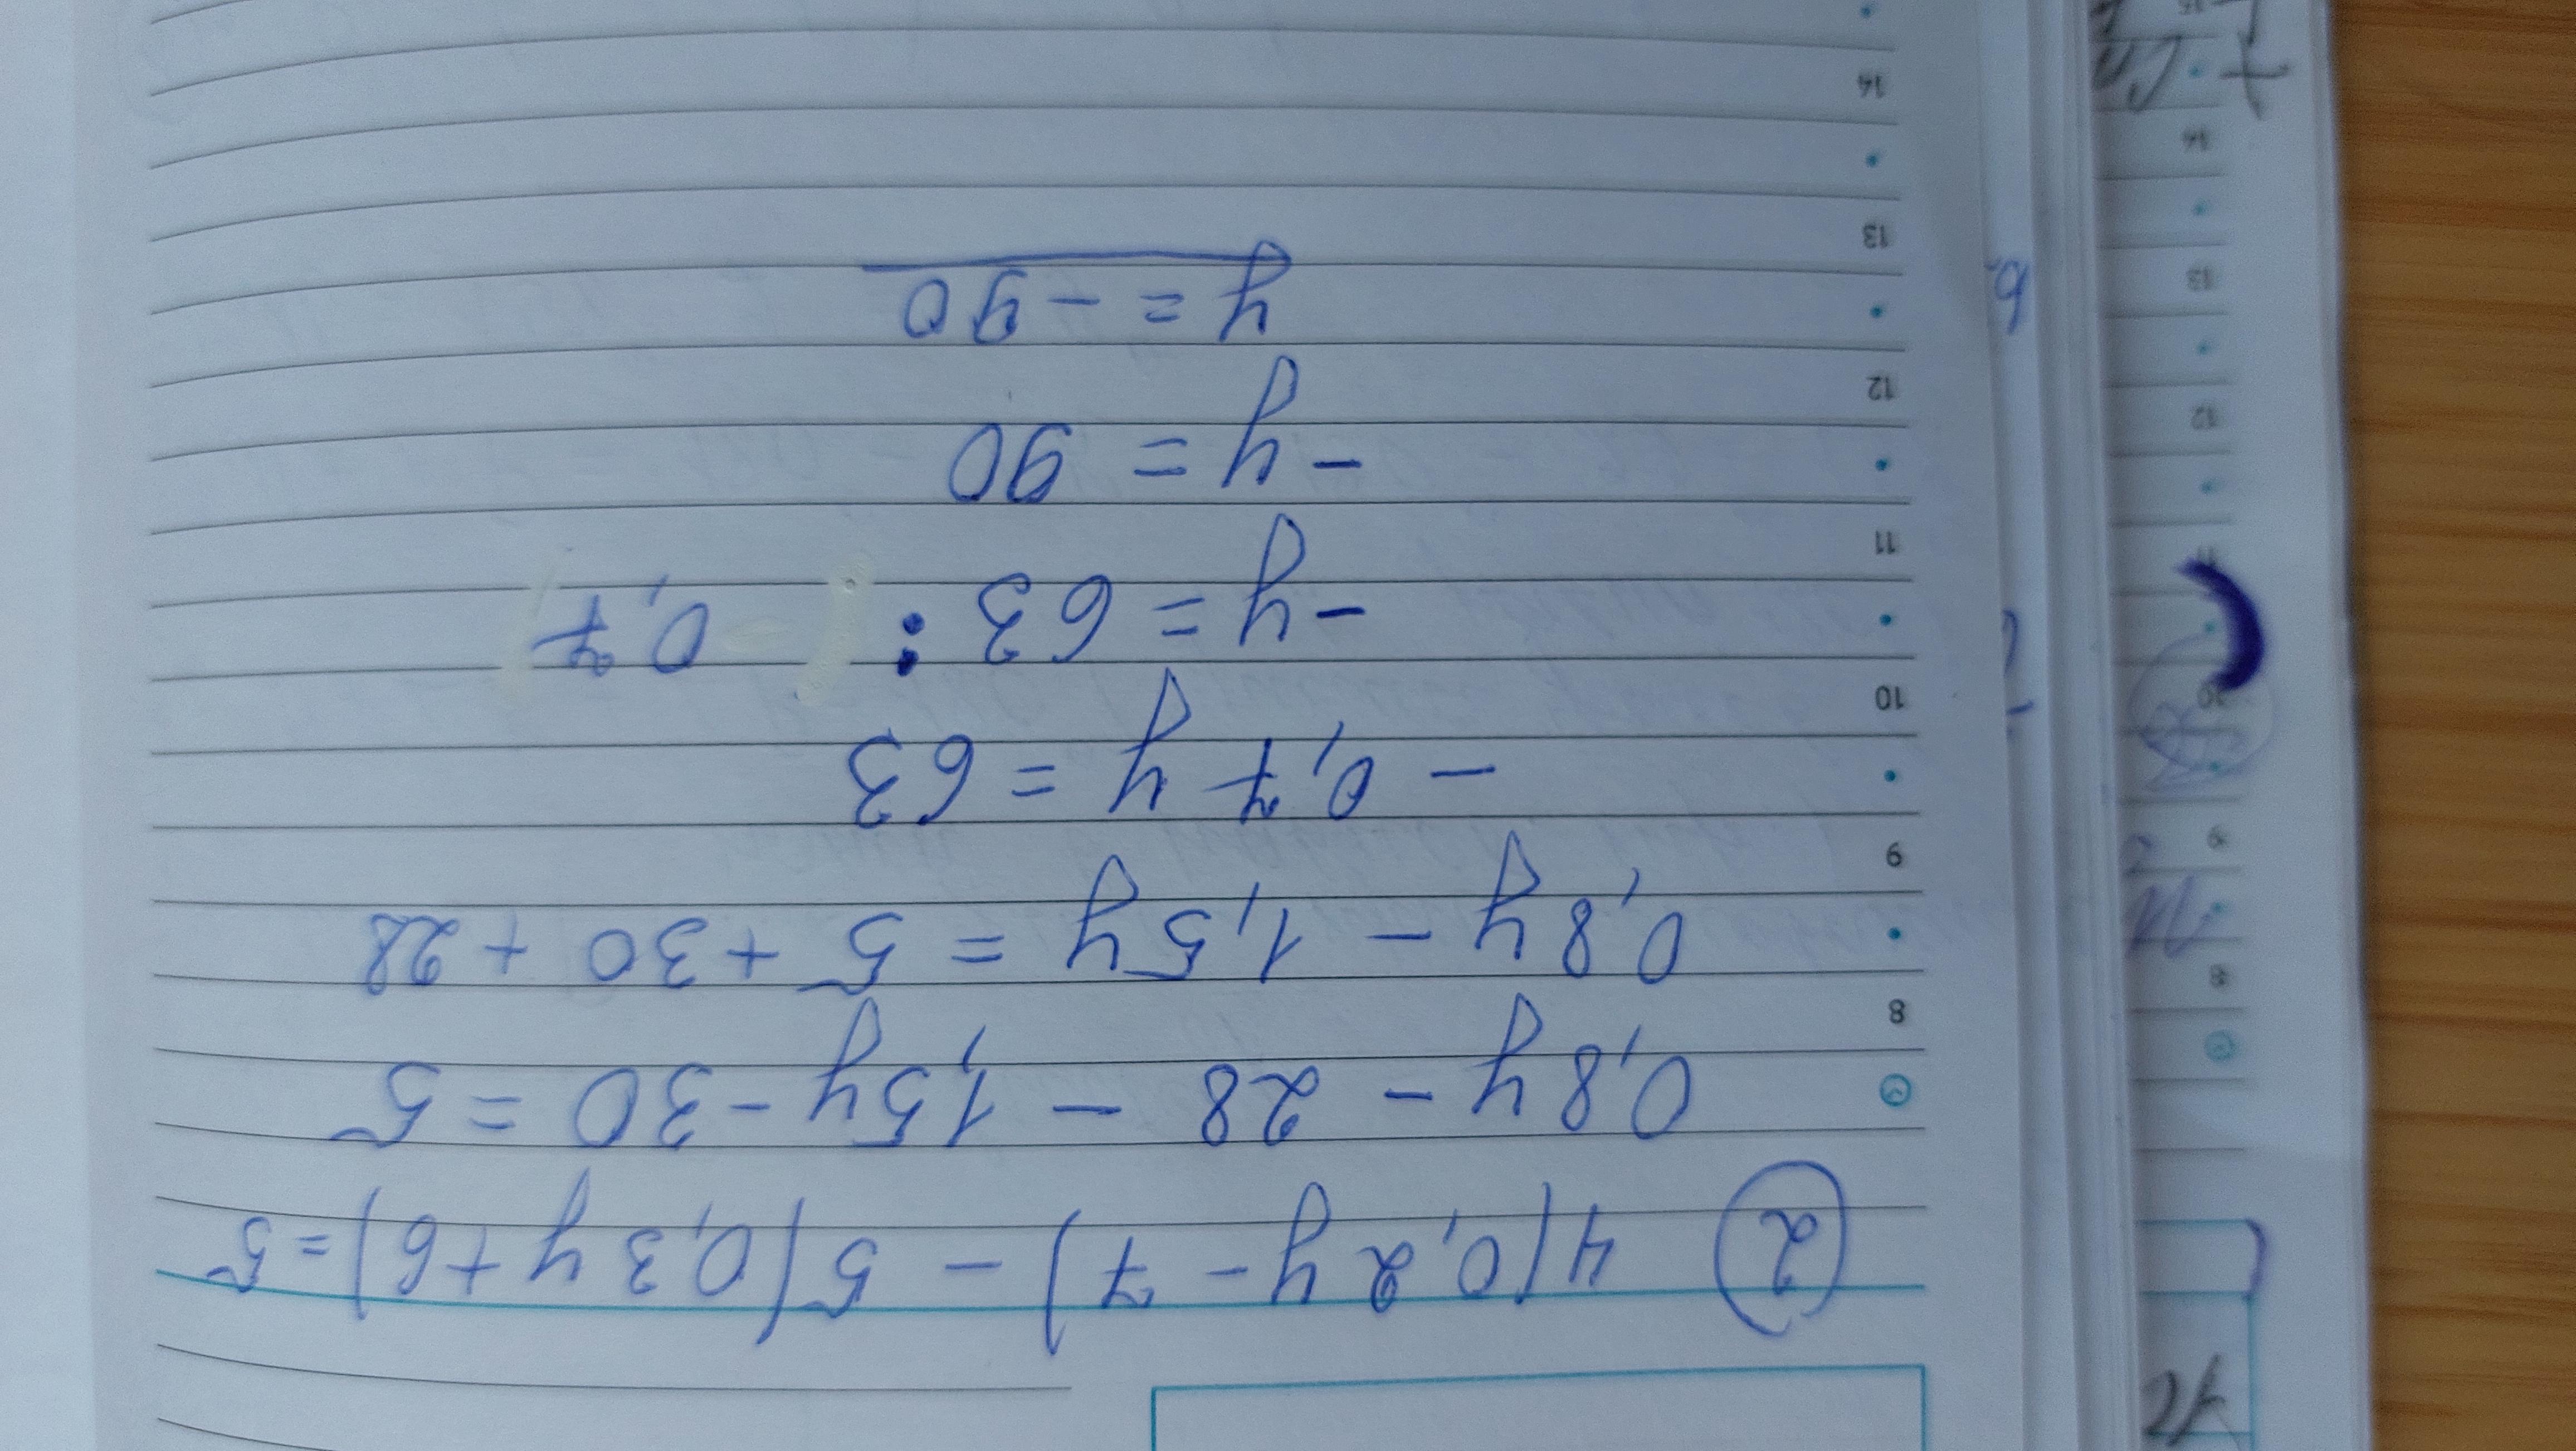 ② 4(0,2y - 7) - 5(0,3y + 6) = 5
0,8y - 28 - 1,5y - 30 = 5
8
0,8y - 1,5y = 5 + 30 + 28
9
- 0,7y = 63
10
- y = 63 : 0,7
11
- y = 90
12
y = - 90
13
14
8
9
12
13
14
15